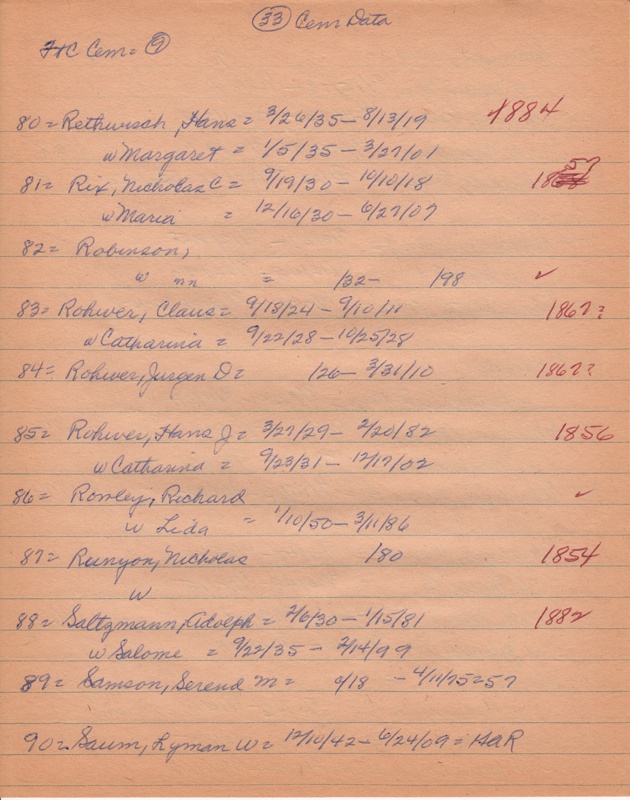 (33) Cem Data
FtC Cem = (9)
80 = Rethwisch, Hans = 3/26/35 - 8/13/19 1884
w Margaret = 1/5/35 - 3/27/01
81 = Rix, Nicholas C = 9/19/30 - 10/10/18 18 57
w Maria = 12/16/30 - 6/27/07
82 = Robinson,
w nn = /32 - /98 ✓
83 = Rohwer, Claus = 9/18/24 - 9/10/11 1867?
w Catharina = 9/22/28 - 10/25/28
84 = Rohwer, Jurgen D = /26 - 3/31/10 1867?
85 = Rohwer, Hans J = 3/27/29 - 2/20/82 1856
w Catharina = 9/23/31 - 12/17/02
86 = Rowley, Richard ✓
w Lida = 1/10/50 - 3/11/86
87 = Runyon, Nicholas /80 1854
w
88 = Saltzmann, Adolph = 2/6/30 - 1/15/81 1882
w Salome = 9/22/35 - 2/14/99
89 = Samson, Serend M = 9/18 - 4/11/75 = 57
90 = Saum, Lyman W = 12/10/42 - 6/24/09 = HAR